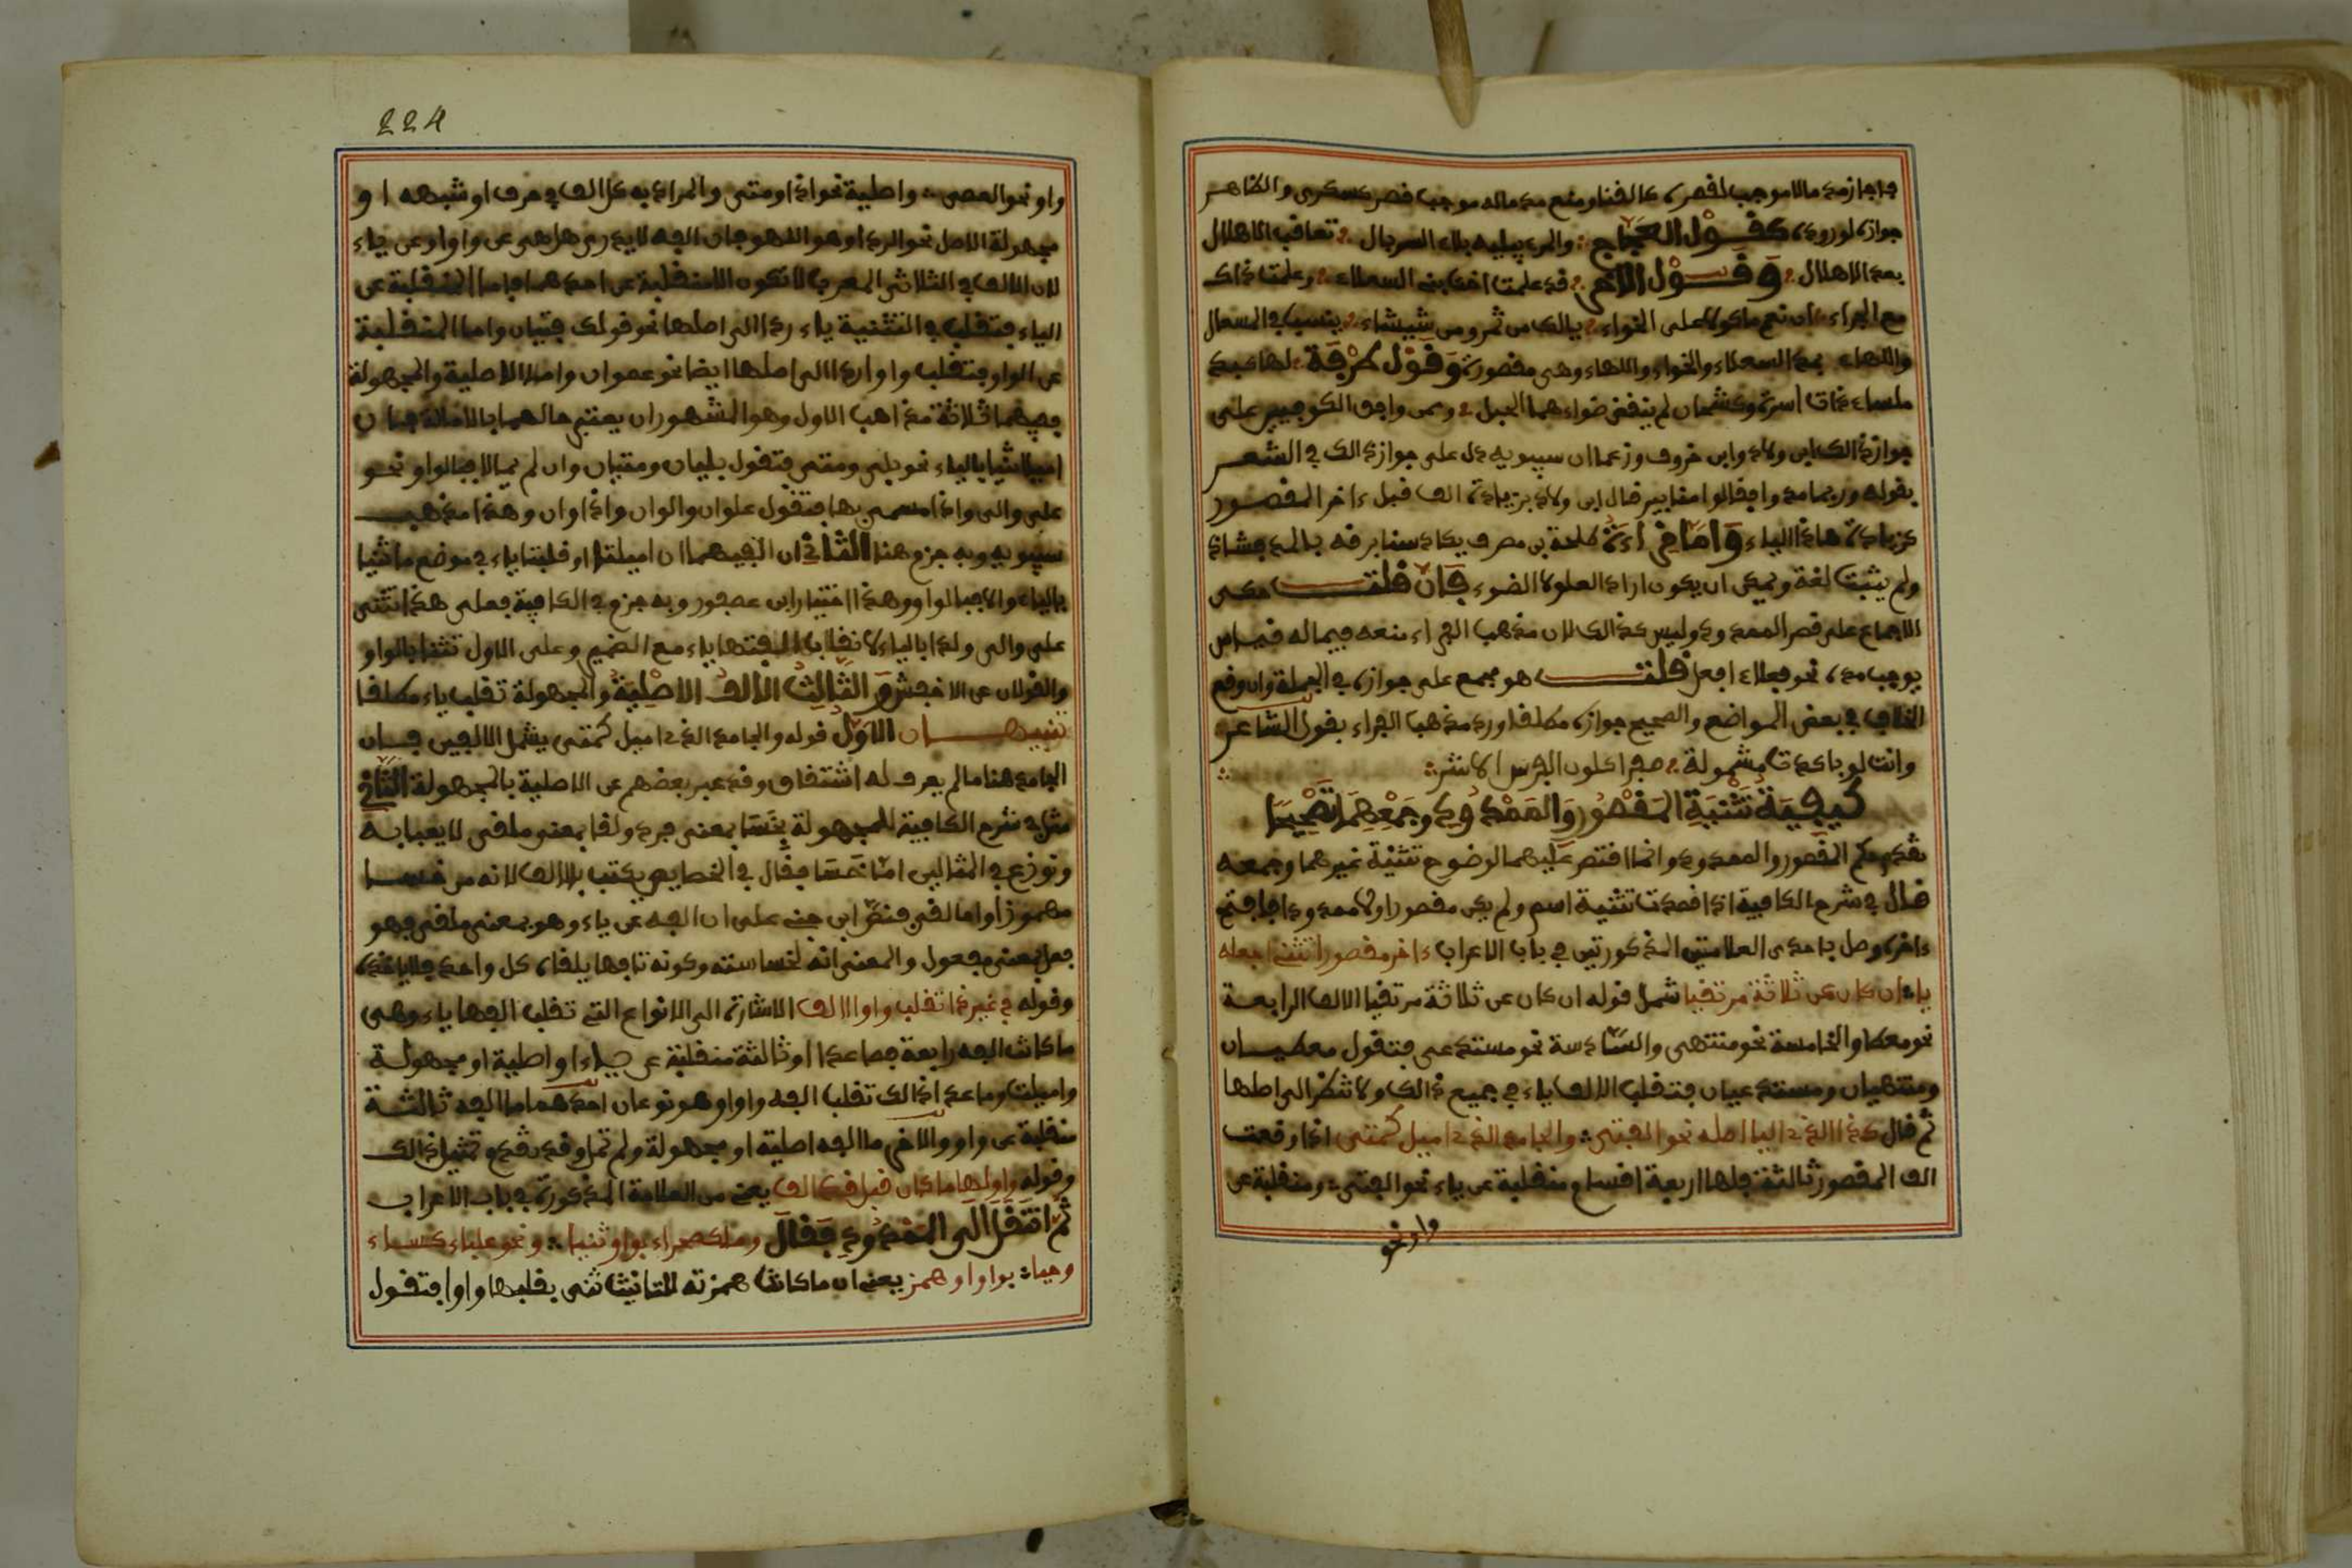 فاجاز مد ما لا موجب لقصره كالغنا ومنع مد ماله موجب قصر كسكرى والظاهر
جوازه لوروده كقول العجاج والمرء يبليه بلاء السربال تعاقب الاهلال
بعد الاهلال وقول الاخر قد علمت اخت بني السعلاء وعلمت ذاك
مع الجراء ان نعم ماكولا على الخواء يالك من تمر ومن شيشاء ينشب في المسعل
واللهاء بمد السعلاء والخواء واللهاء وهي مقصورة وقول طرفة لها كبد
ملساء ذات اسرة وكشحان لم ينقض ضواءهما الحبل وممن وافق الكوفيين على
جواز ذالك ابن ولاد وابن خروف وزعما ان سيبويه دل على جواز ذالك في الشعر
بقوله وربما مدوا فقالوا منابير قال ابن ولاد بزيادة الف قبل ءاخر المقصور
كزيادة هاذا الياء واما قراءة طلحة بن مصرف يكاد سنا برقه بالمد فشاذة
ولم يثبت لغة ويمكن ان يكون اراد العلو لا الضوء فان قلت حكى
الاجماع على قصر الممدود وليس كذالك لان مذهب الفراء منعه فيما له قياس
يوجب مده نحو فعلاء افعل قلت هو مجمع على جوازه في الجملة وان وقع
الخلاف في بعض المواضع والصحيح جوازه مطلقا ورد مذهب الفراء بقول الشاعر
وانت لو باكرت مشمولة صفرا كلون الفرس الاشقر
كيفية تثنية المقصور والممدود وجمعهما تصحيحا
المقصور والممدود وانما اقتصر عليهما لوضوح تثنية غيرهما وجمعه
قال في شرح الكافية اذا قصدت تثنية اسم ولم يكن مقصورا ولا ممدودا فافتح
ءاخره وصل باحدى العلامتين المذكورتين في باب الاعراب ءاخر مقصور اتثني اجعله
ياء ان كان عن ثلاثة مرتقيا شمل قوله ان كان عن ثلاثة مرتقيا الالف الرابعة
نحو معطا والخامسة نحو منتهى والسادسة نحو مستدعى فتقول معطيان
ومنتهيان ومستدعيان فتقلب الالف ياء في جميع ذالك ولا تنظر الى اصلها
ثم قال كذا الذي اليا اصله نحو الفتى والجامد الذي اميل كمتى اذا وقعت
الف المقصور ثالثة فلها اربعة اقسام منقلبة عن ياء نحو الفتى ومنقلبة عن
واو نحو
224
واو نحو العصى واصلية نحو اذا ومتى والمراد به كل الف في حرف او شبهه او
مجهولة الاصل نحو الددا وهو اللهو فان الفه لا يدرى هل هي عن واو او عن ياء
لان الالف في الثلاثي المعرب لا تكون الا منقلبة عن احدهما فاما المنقلبة عن
الياء فتقلب في التثنية ياء ردا الى اصلها نحو قولك فتيان واما المنقلبة
عن الواو فتقلب واوا ردا الى اصلها ايضا نحو عصوان واما الاصلية والمجهولة
ففيهما ثلاثة مذاهب الاول وهو المشهور ان يعتبر حالهما بالامالة فان
اميلا ثنيا بالياء نحو بلى ومتى فتقول بليان ومتيان وان لم يمالا فبالواو نحو
على والى واذا مسمى بها فتقول علوان والوان واذاوان وهذا مذهب
سيبويه وبه جزم هنا الثاني ان الفيهما ان اميلتا او قلبتا ياء في موضع ما ثنيا
بالياء والا فبالواو وهذا اختيار ابن عصفور وبه جزم في الكافية فعلى هذا تثنى
على والى ولدا بالياء لانقلاب الفتها ياء مع الضمير وعلى الاول تثنا بالواو
والقولان عن الاخفش والثالث الالف الاصلية والمجهولة تقلب ياء مطلقا
تنبيهان الاول قوله والجامد الذي اميل كمتى يشمل الالفين فان
الجامد هنا ما لم يعرف له اشتقاق وقد عبر بعضهم عن الاصلية بالمجهولة الثاني
مثل في شرح الكافية للمجهولة بخسا بمعنى فرد ولقا بمعنى ملقى لا يعبا به
ونوزع في المثالين اما خسا فقال في الخصايص يكتب بالالف لانه من خسا
مهموزا واما لقى فنص ابن جني على ان الفه عن ياء وهو بمعنى ملقى فهو
فعل بمعنى مفعول والمعنى انه لخساسته وكونه تافها يلقاه كل واحد فلا ياخذه
وقوله في غير ذا تقلب واوا الالف الاشارة الى الانواع التي تقلب الفها ياء وهي
ما كانت الفه رابعة فصاعدا او ثالثة منقلبة عن ياء او اصلية او مجهولة
واميلت وما عدا ذالك تقلب الفه واوا وهو نوعان احدهما ما الفه ثالثة
منقلبة عن واو والاخر ما الفه اصلية او مجهولة ولم تمل وقد تقدم تمثيل ذالك
وقوله واولها ما كان قبل قد الف يعني من العلامة المذكورة في باب الاعراب
ثم انتقل الى الممدود فقال وما كصحراء بواو ثنيا ونحو علباء كساء
وحيا بواو او همز يعني ان ما كانت همزته للتانيث ثنى بقلبها واوا فتقول